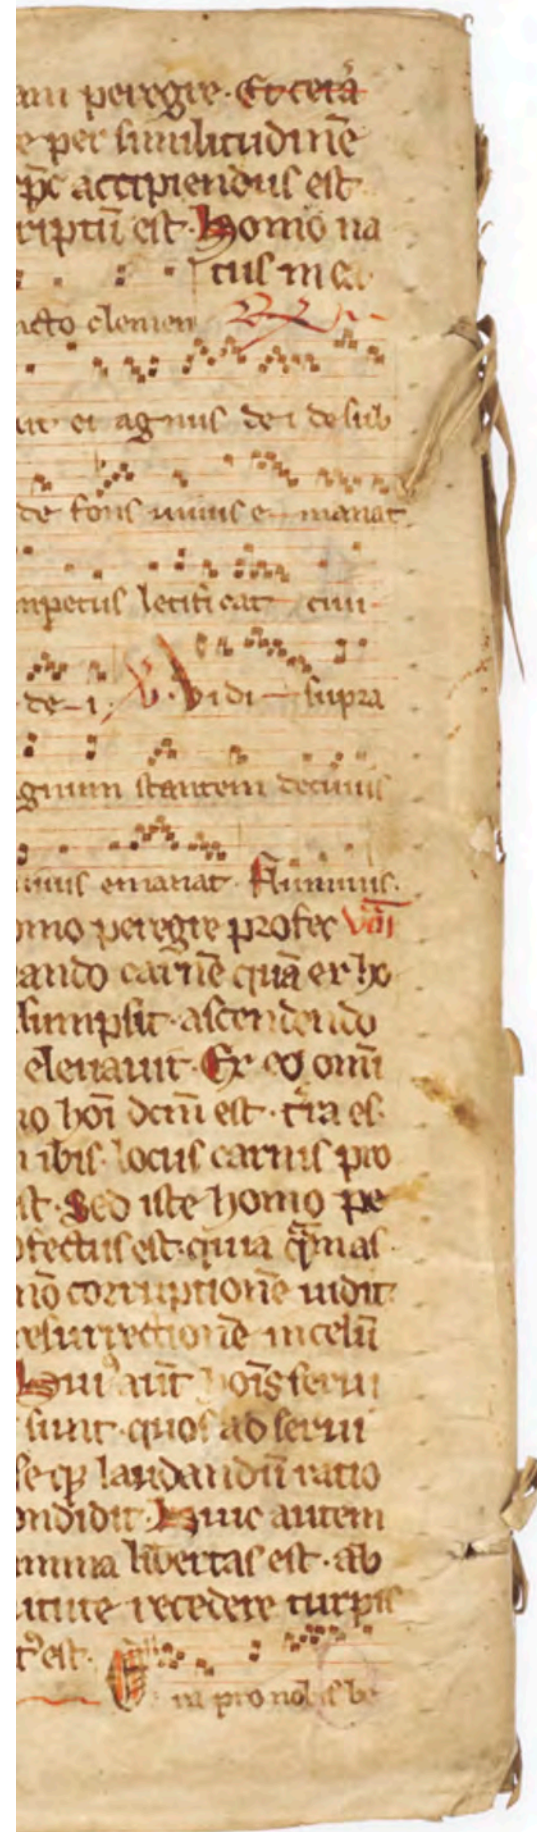 am peregre. Et cetã
e per similitudinē
p̄c accipiendus est
riptū est. Homo na
tus in ea.
ncto clemen R
it ei agnus dei de sub
de fons uiuus e manat
mpetus letificat ciui
de i. V. Vidi supra
gnum stantem de cuius
iuus emanat. Fluminis.
omo peregre profec VIII
ando carnē quā ex ho
sumpsit. ascendendo
eleuauit. Ex eo omī
no hoī dcm̄ est. t̄ra es
n ibis. locus carnis pro
st. Sed iste homo pe
ofectus est. quia
nō corruptionē uidit.
resurrectionē in celū
Hui⁹ aūt hoīs serui
sunt. quos ad serui
se laudandū ratio
ondidit. Huic autem
mma libertas est. ab
recedere turpis
t⁹ est.
ra pro nobis be